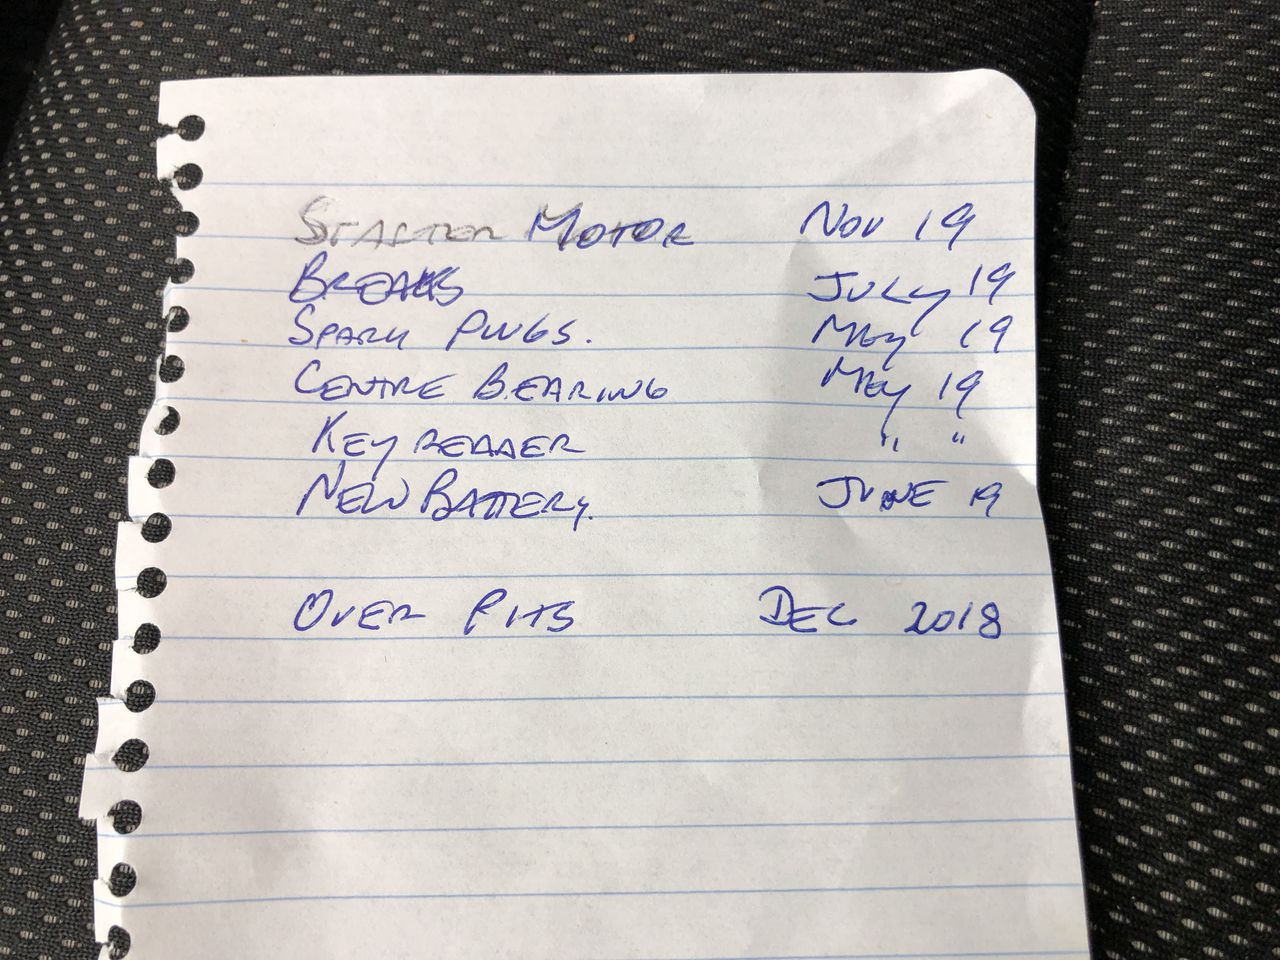 STARTER MOTOR NOV 19
BREAKS JULY 19
SPARK PLUGS. MAY 19
CENTRE BEARING MAY 19
KEY READER " "
NEW BATTERY. JUNE 19
OVER PITS DEC 2018